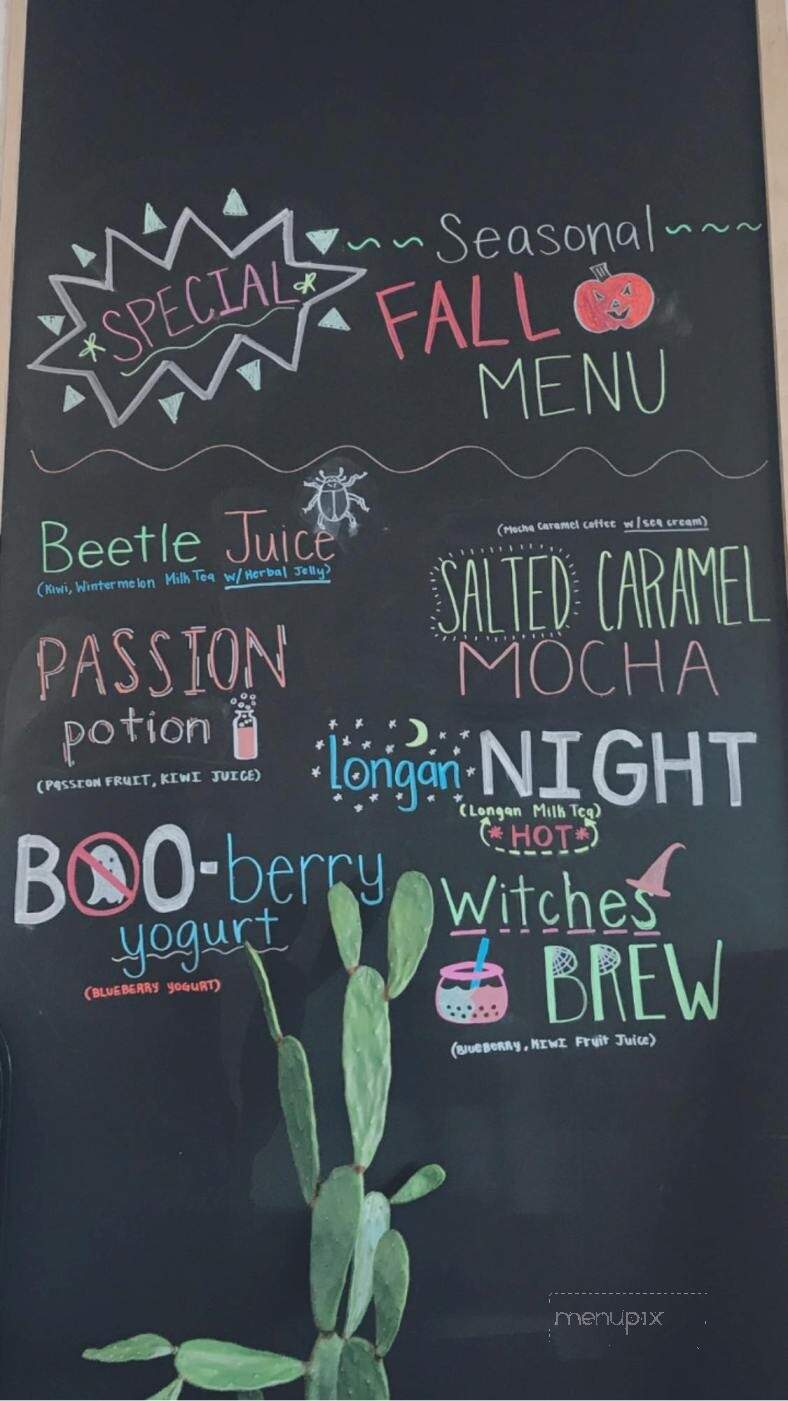 SPECIAL
Seasonal
FALL
MENU
Beetle Juice
(Kiwi, Wintermelon Milk Tea w/ Herbal Jelly)
PASSION
potion
(PASSION FRUIT, KIWI JUICE)
BOO-berry
yogurt
(BLUEBERRY YOGURT)
(Mocha Caramel coffee w/ sea cream)
SALTED CARAMEL
MOCHA
Longan NIGHT
(Longan Milk Tea)
*HOT*
Witches
BREW
(BLUEBERRY, KIWI Fruit Juice)
menupix